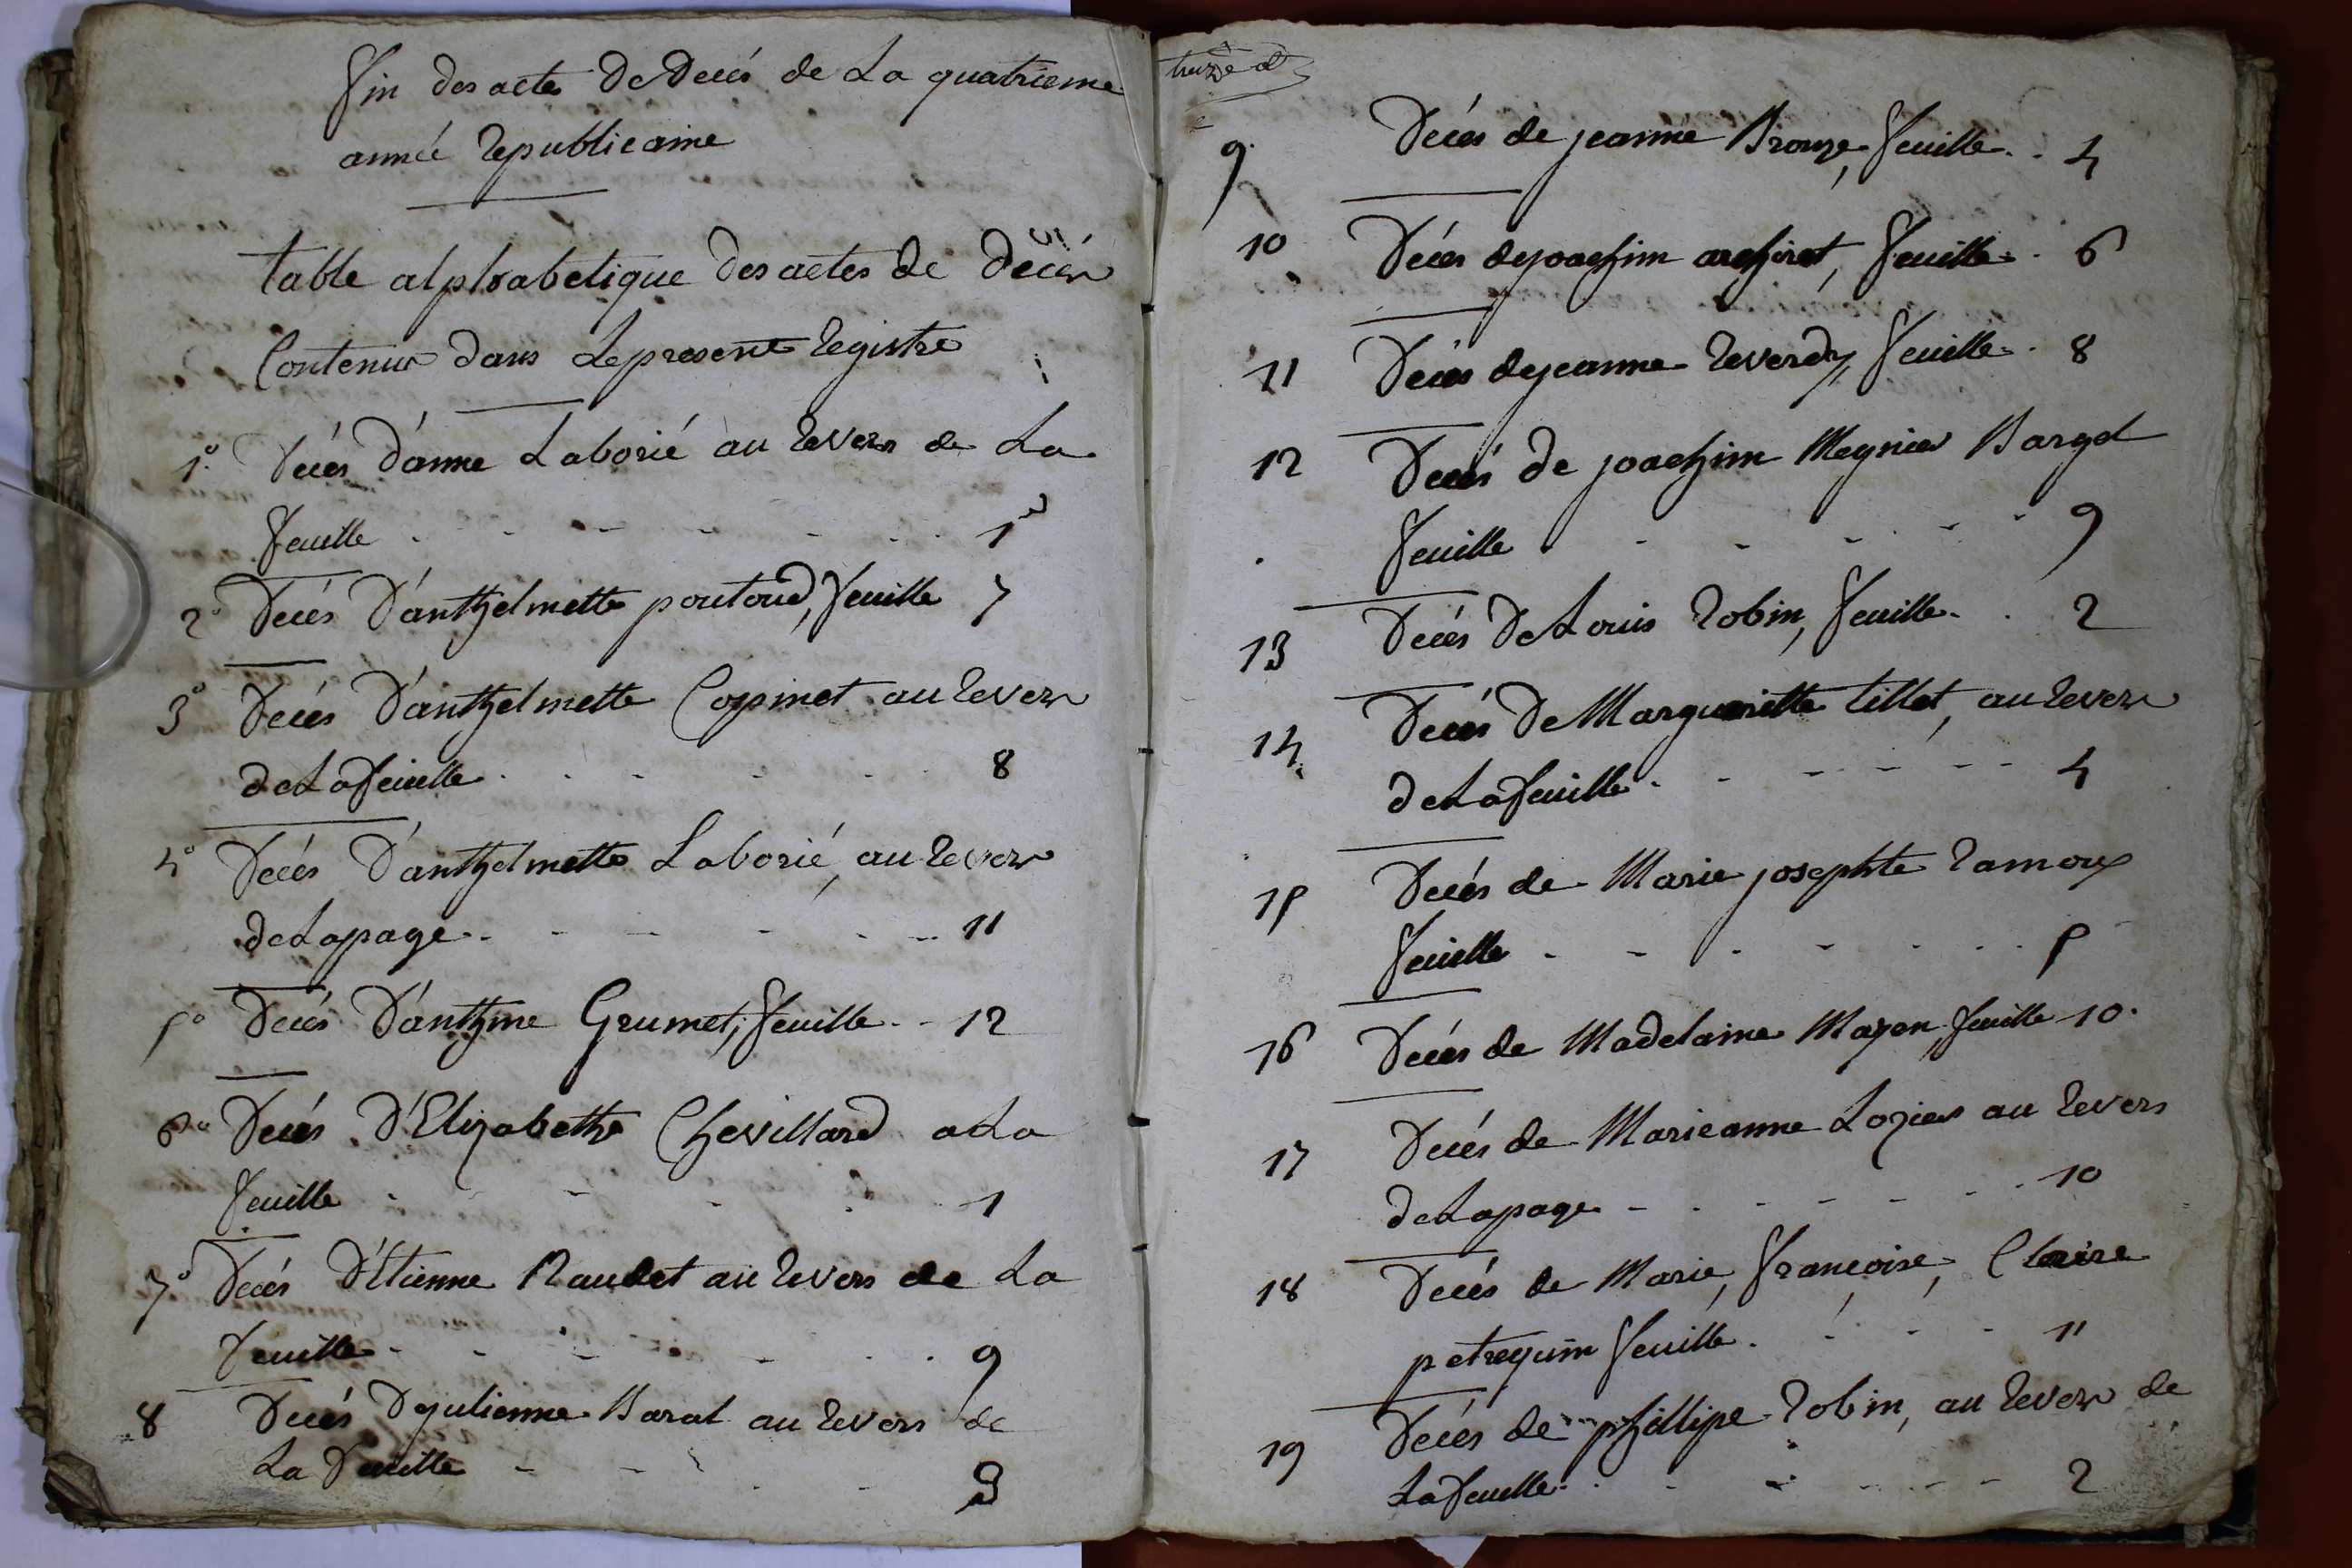 fin des actes de decés de la quatrieme
année republicaine
table alphabetique des actes de décès
contenus dans le present registre
1° Decés d'anne Laborié au revers de la
feuille 1
2° Decés d'anthelmette poutoud, feuille 7
3° Decés d'anthelmette Copinet au revers
de la feuille 8
4° Decés d'anthelmette Laborié, au revers
de la page 11
5° Decés d'anthme Grumet, feuille 12
6° Decés d'Elizabethe Chevillard a la
feuille 1
7° Decés d'Etienne Raudet au revers de la
feuille 9
8 Decés de julienne Barat au revers de
la feuille 3
9. Decés de jeanne Brouze, feuille 4
10 Decés de joachim archiret, feuille 6
11 Decés de jeanne Reverdy, feuille 8
12 Decés de joachim Meynier Barget
feuille 9
13 Decés de Louis Robin, feuille 2
14 Decés de Margueritte tillet, au revers
de la feuille 4
15 Decés de Marie josephte Ramoux
feuille 5
16 Decés de Madelaine Mazen feuille 10.
17 Decés de Marieanne Lozier au revers
de la page 10
18 Decés de Marie, françoise, Claire
petrequin feuille 11
19 Decés de phillipe Robin, au revers de
la feuille 2